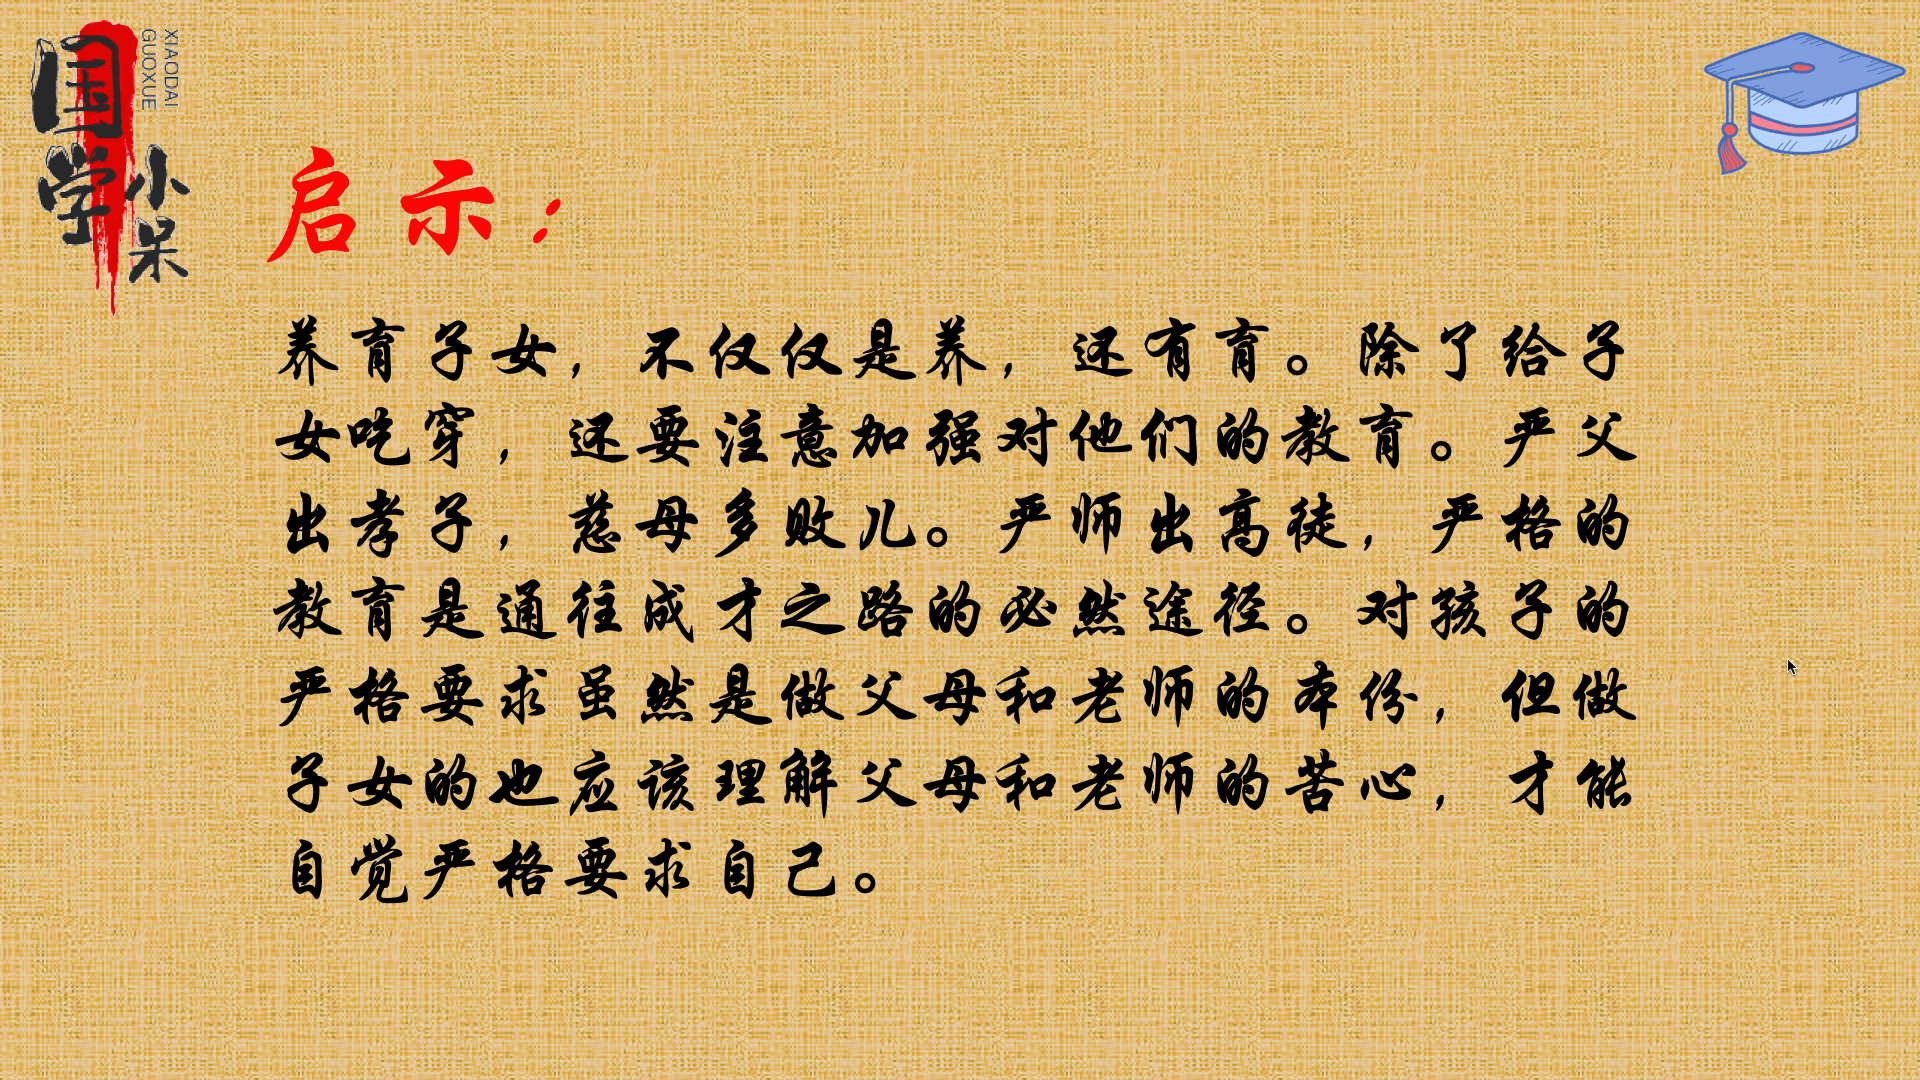 国学
小呆
XIAODAI
GUOXUE
启示：
养育子女，不仅仅是养，还有育。除了给子
女吃穿，还要注意加强对他们的教育。严父
出孝子，慈母多败儿。严师出高徒，严格的
教育是通往成才之路的必然途径。对孩子的
严格要求虽然是做父母和老师的本份，但做
子女的也应该理解父母和老师的苦心，才能
自觉严格要求自己。